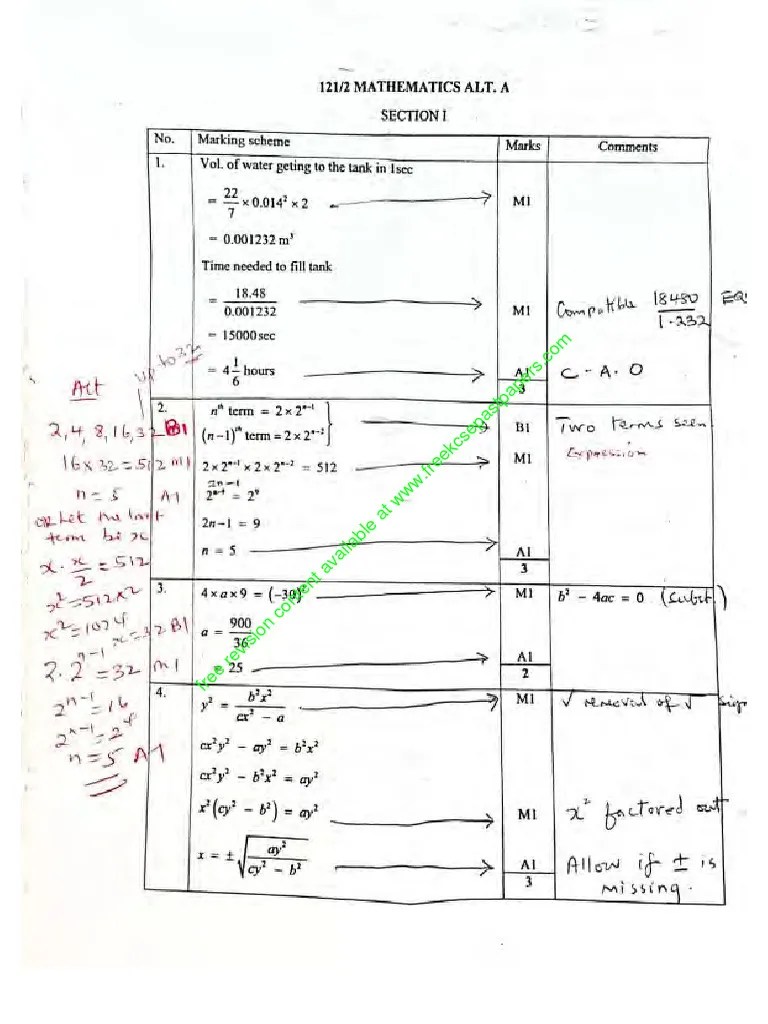 121/2 MATHEMATICS ALT. A
SECTION I
No. Marking scheme Marks Comments
1. Vol. of water geting to the tank in 1sec
= 22/7 × 0.014² × 2 M1
= 0.001232 m³
Time needed to fill tank
= 18.48/0.001232 M1 Compatible 18480/1.232
= 15000 sec
= 4 1/6 hours A1 C-A.O
3
2. nᵗʰ term = 2 × 2ⁿ⁻¹
(n−1)ᵗʰ term = 2 × 2ⁿ⁻² B1 Two terms seen
2 × 2ⁿ⁻¹ × 2 × 2ⁿ⁻² = 512 M1 Expression
2n-1
2ⁿ⁻¹ = 2⁹
2n−1 = 9
n = 5 A1
3
3. 4 × a × 9 = (−30) M1 b² − 4ac = 0 (Subst.)
a = 900/36
= 25 A1
2
4. y² = b²x²/(cx² − a) M1 √ removal of √ sign
cx²y² − ay² = b²x²
cx²y² − b²x² = ay²
x²(cy² − b²) = ay² M1 x² factored out
x = ±√(ay²/(cy² − b²)) A1 Allow if ± is
3 missing.
Alt
up to 32
2,4,8,16,32 B1
16x32=512 M1
n=5 A1
OR Let the last
term be x
x · x/2 = 512
x²=512x2
x²=1024
x=32 B1
2·2ⁿ⁻¹=32 M1
2ⁿ⁻¹=16
2ⁿ⁻¹=2⁴
n=5 A1
free revision content available at www.freekcsepastpapers.com